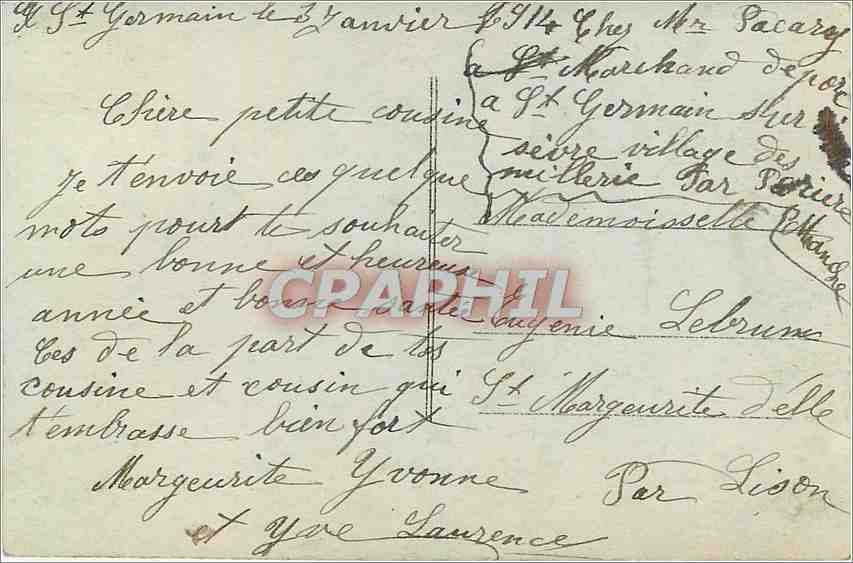 St Germain le 3 Janvier 1914
Chère petite cousine
je t'envoie ces quelque
mots pourt te souhaiter
une bonne et heureus
année et bonne santée
Ces de la part de tes
cousine et cousin qui
t'embrasse bien fort
Margeurite Yvonne
et Yve Laurence
Chez Mr Pacary
a St Marchand de porc
a St Germain sur
sèvre village des
millerie Par Periere
Manche
Mademoisselle
Eugenie Lebrun
St Margeurite d'elle
Par Lison
CPAPHIL